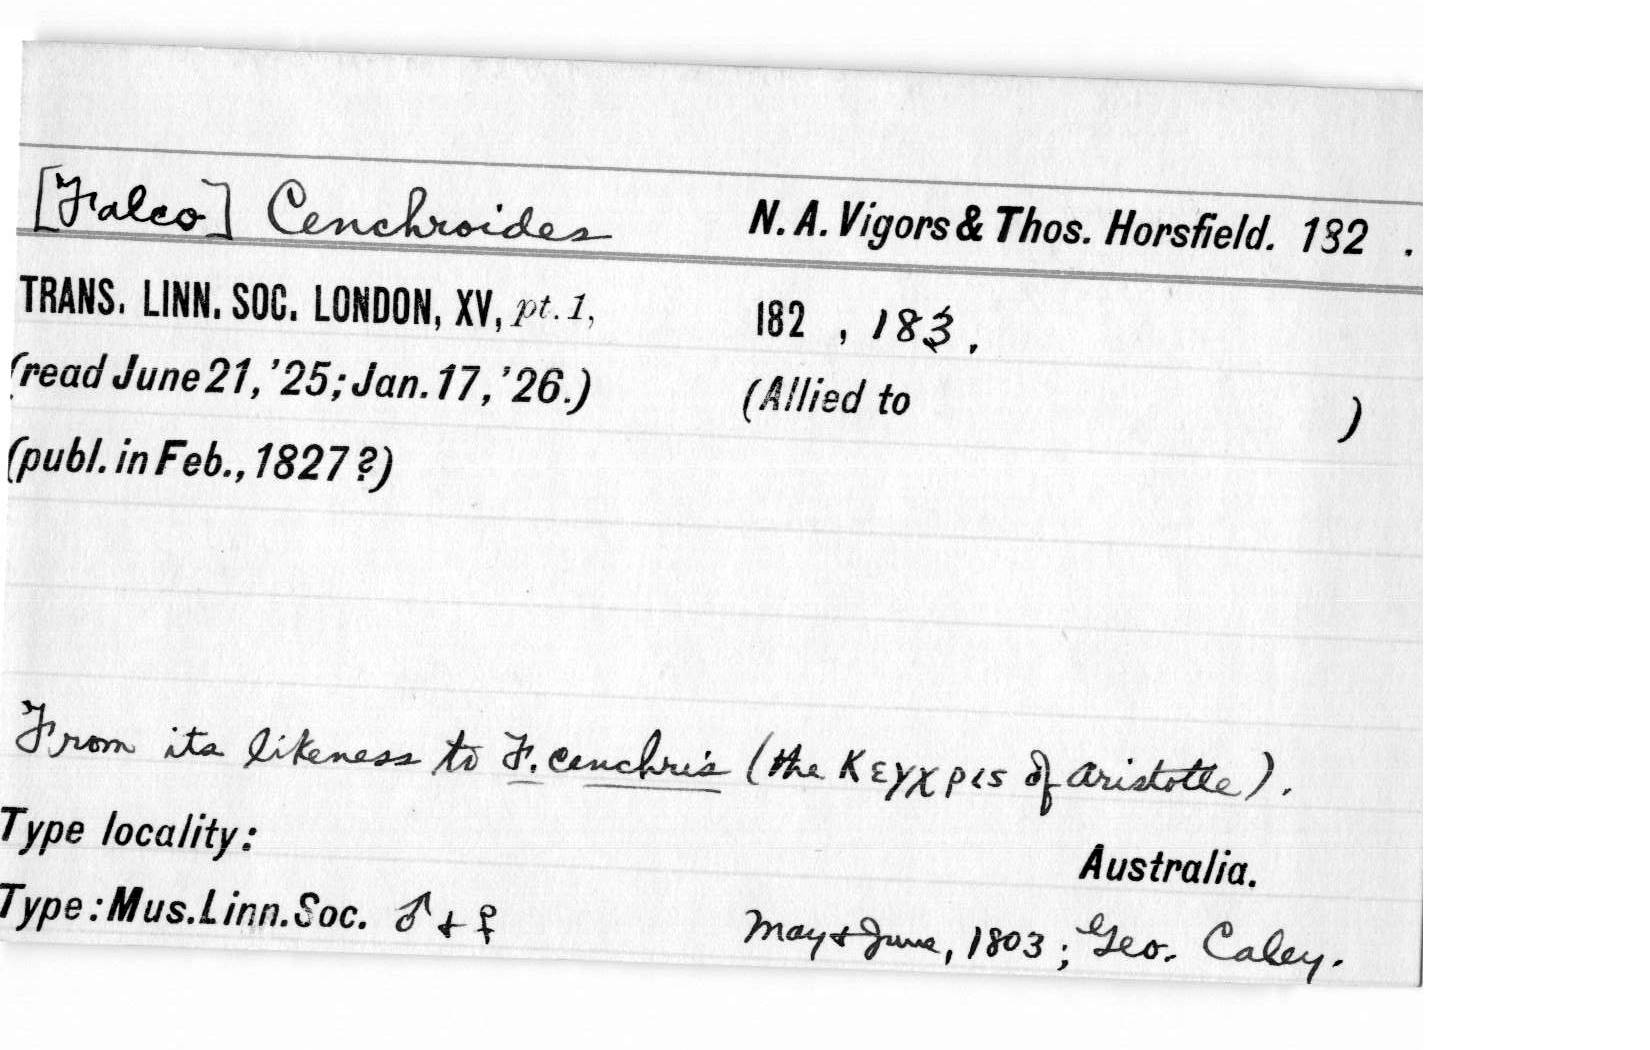 [Falco] Cenchroides N. A. Vigors & Thos. Horsfield. 182 .
TRANS. LINN. SOC. LONDON, XV, pt. 1, 182 , 183 .
(read June 21, '25; Jan. 17, '26.) (Allied to )
(publ. in Feb., 1827 ?)
From its likeness to F. cenchris (the Κεγχρις of Aristotle).
Type locality: Australia.
Type: Mus. Linn. Soc. ♂ + ♀ May & June, 1803 ; Geo. Caley.